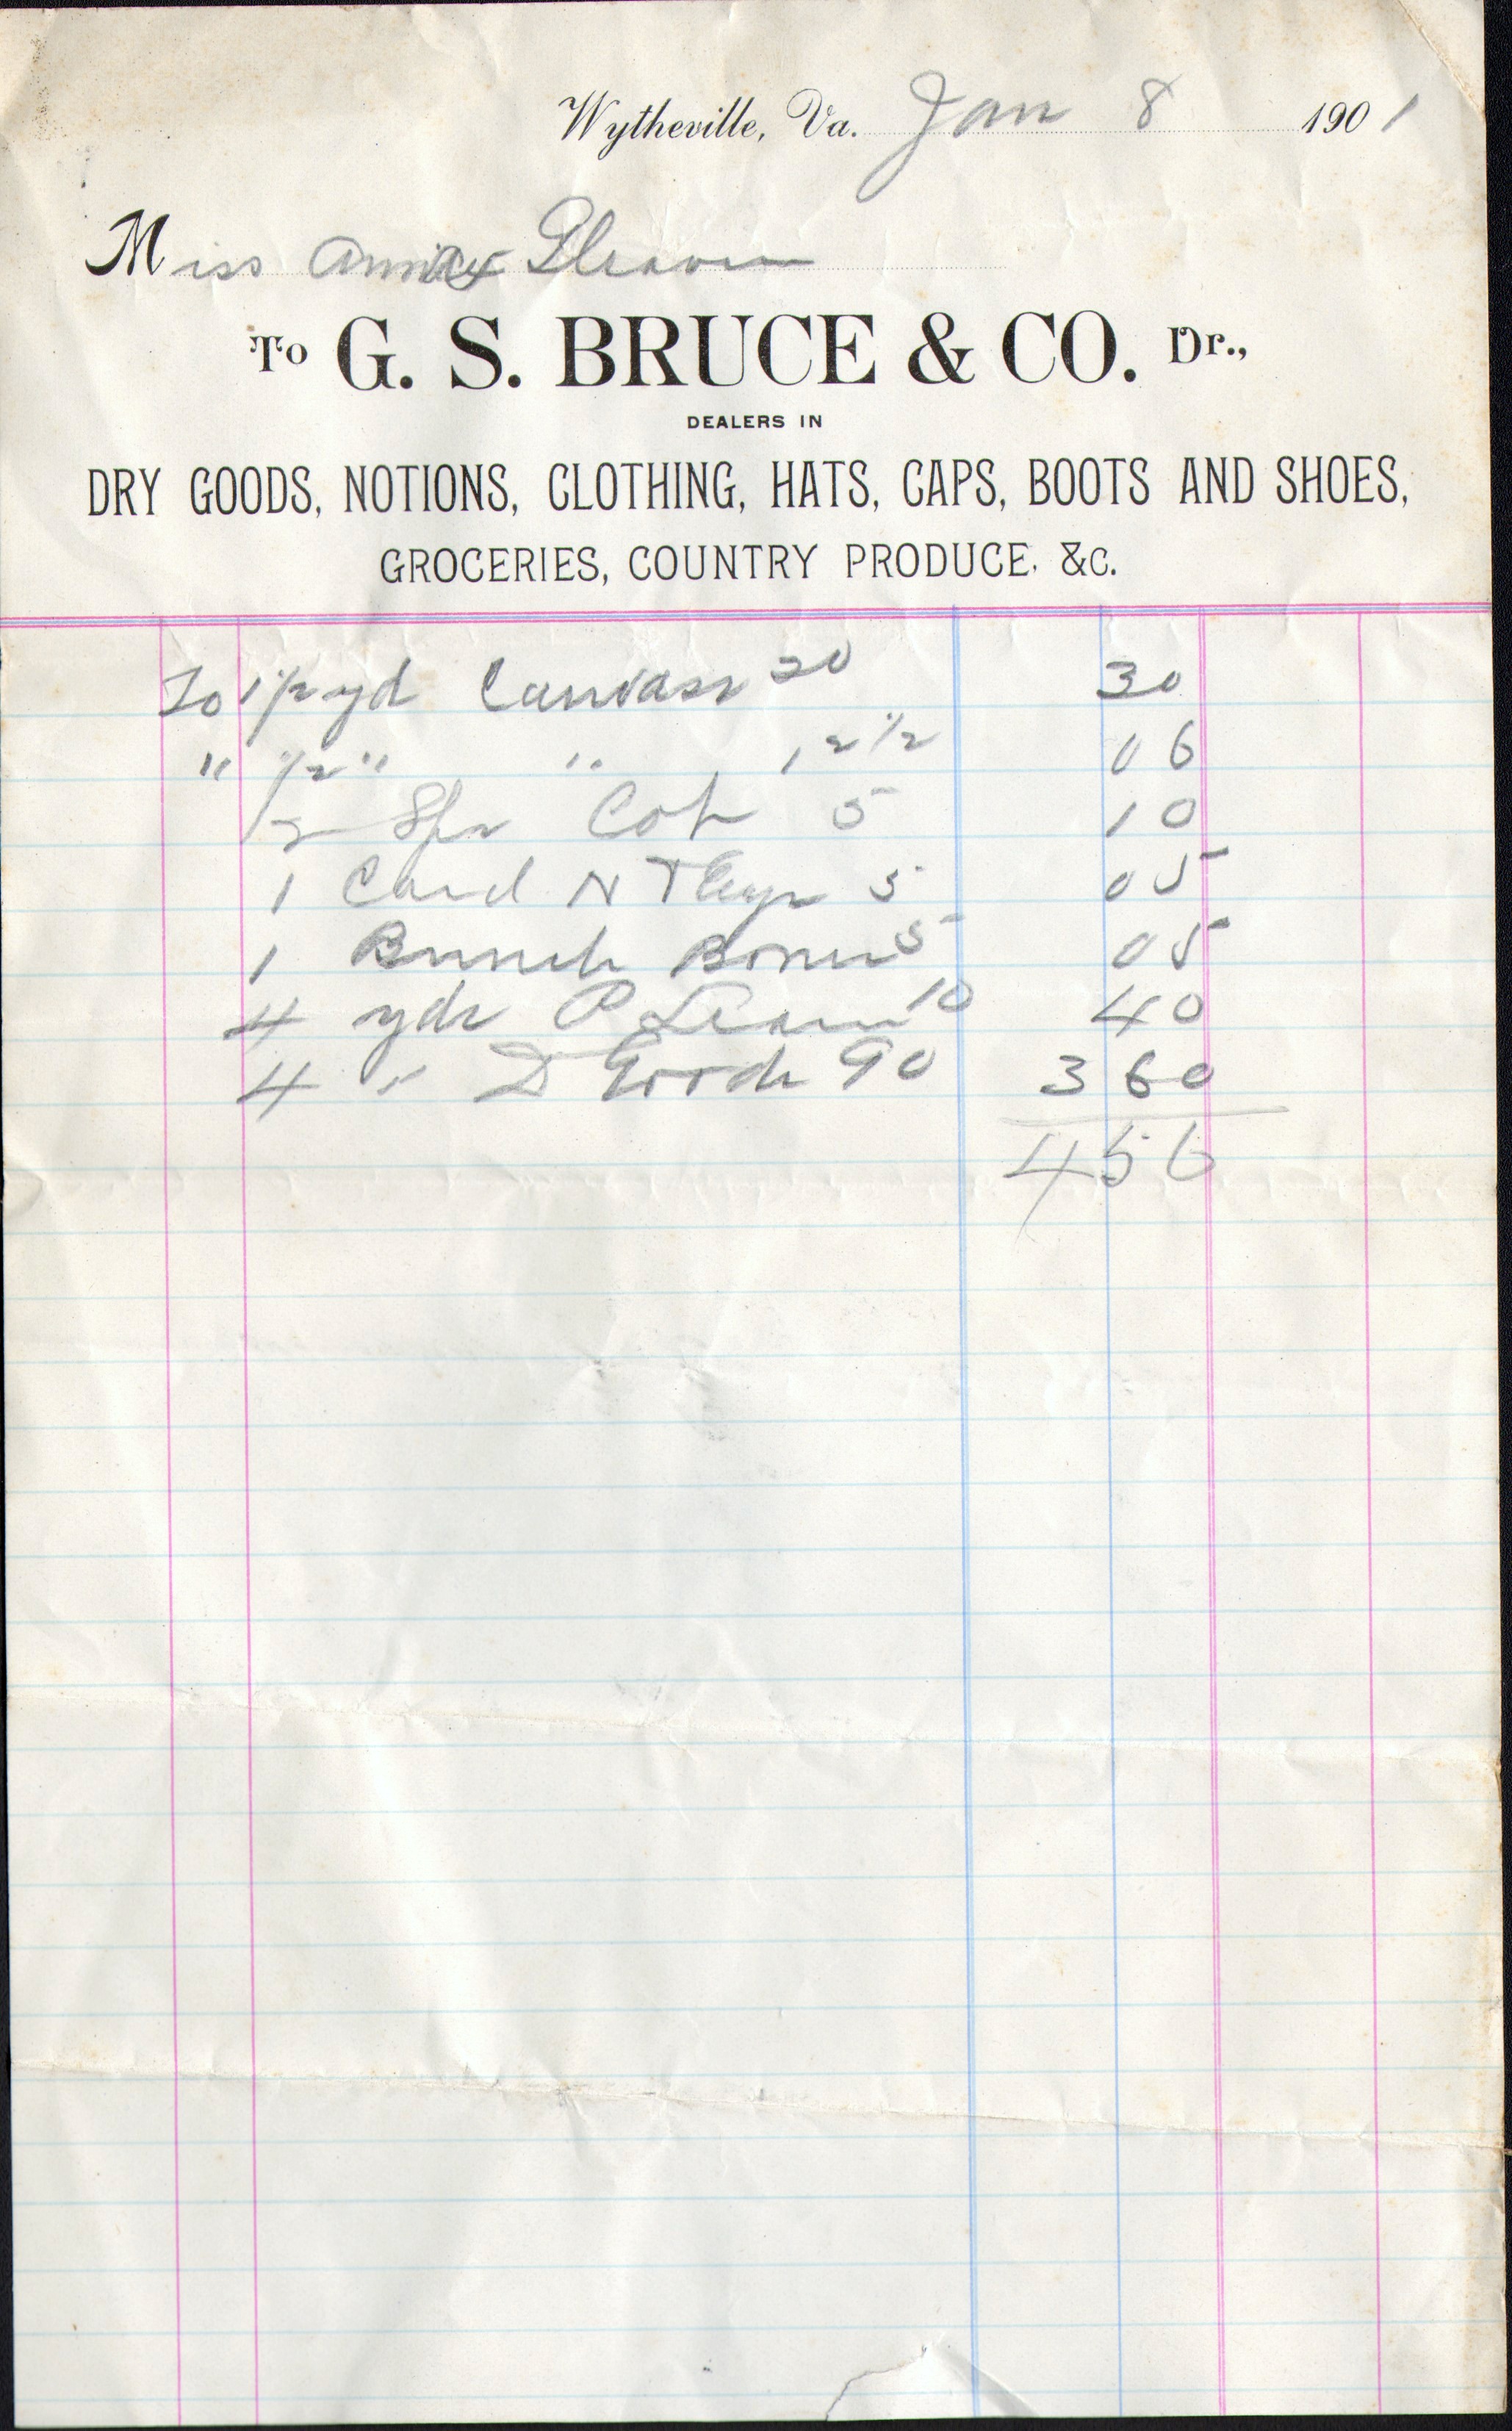 Wytheville, Va. Jan 8 1901
Miss Annie
To G. S. BRUCE & CO. Dr.,
DEALERS IN
DRY GOODS, NOTIONS, CLOTHING, HATS, CAPS, BOOTS AND SHOES,
GROCERIES, COUNTRY PRODUCE. &C.
To 1 1/2 yd Canvass 20 30
" 1/2 " " 12 1/2 06
2 Spr Cot 5 10
1 Card N 5 05
1 Bunch Bones 5 05
4 yds P 10 40
4 " D Goods 90 3 60
4 56